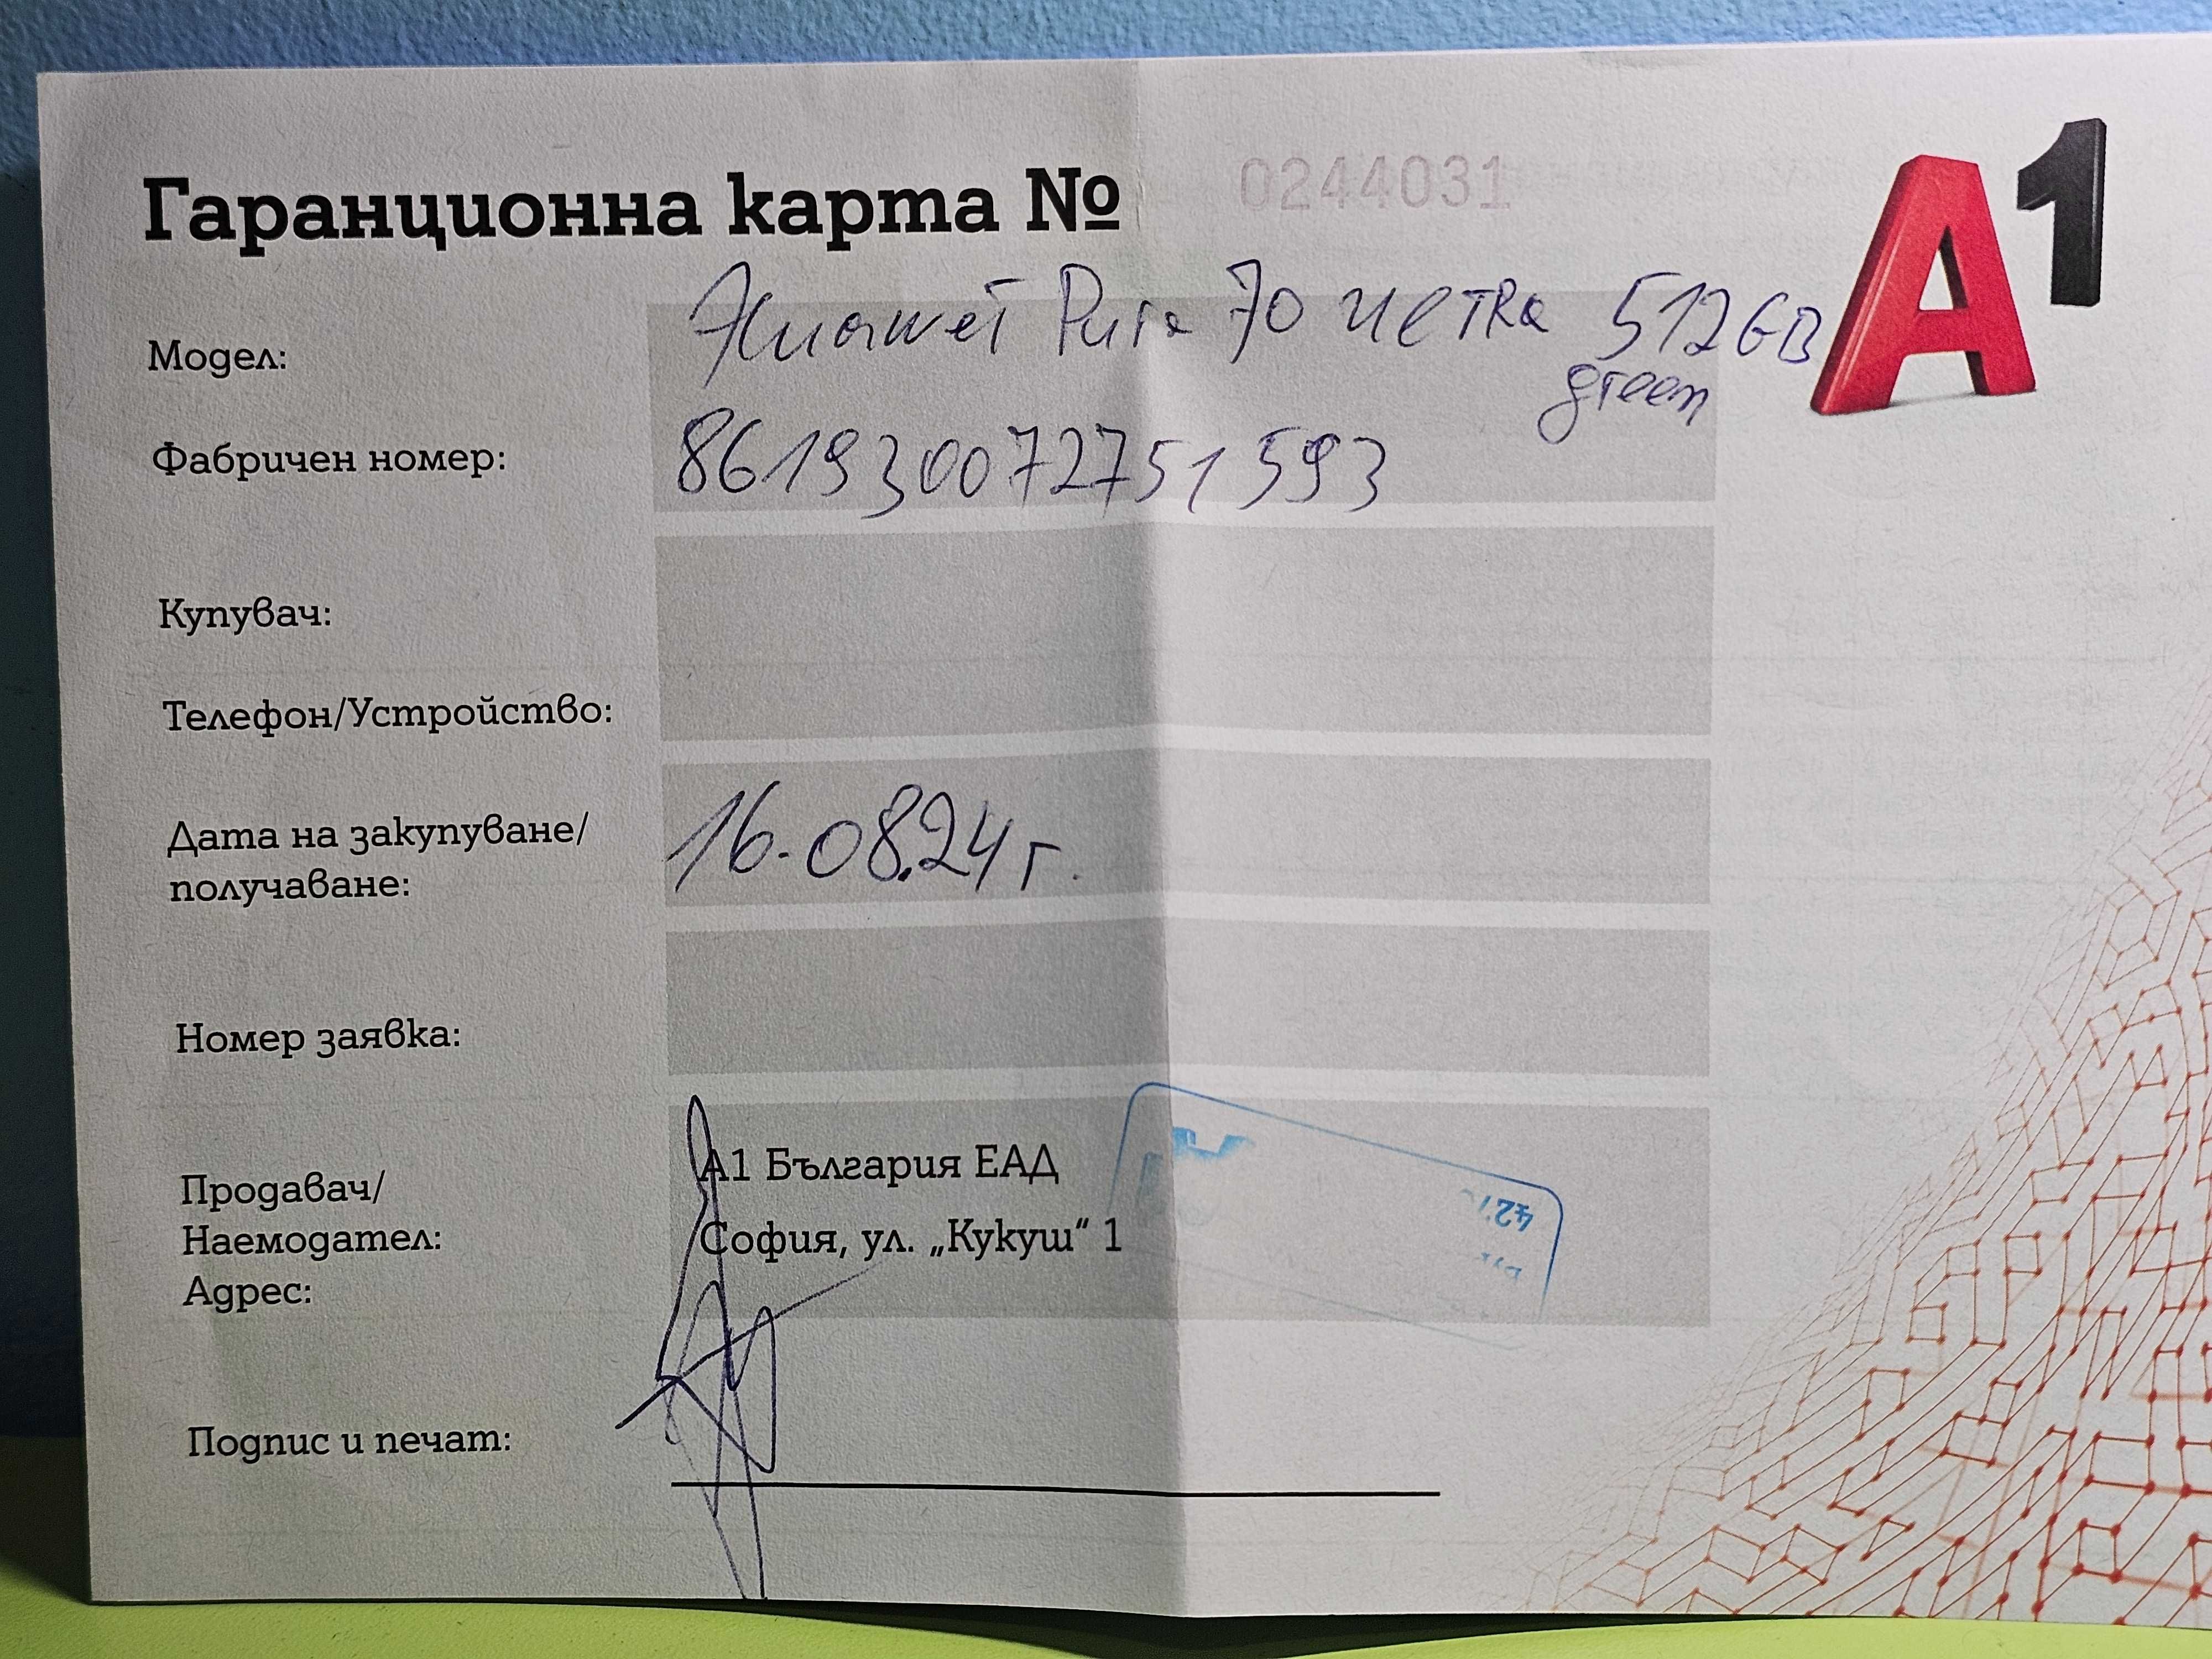 Гаранционна карта №
0244031
A1
Модел:
Huawei Pura 70 ULTRA 512GB
green
Фабричен номер:
861930072751593
Купувач:
Телефон/Устройство:
Дата на закупуване/
получаване:
16.08.24г.
Номер заявка:
Продавач/
Наемодател:
Адрес:
А1 България ЕАД
София, ул. „Кукуш“ 1
Подпис и печат: